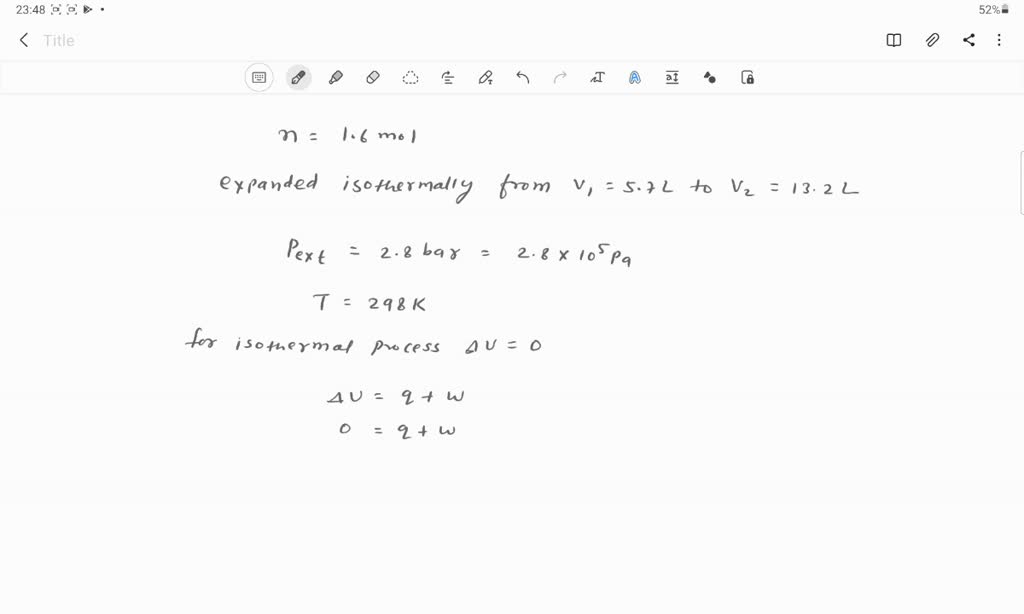 23:48
52%
Title
n = 1.6 mol
expanded isothermally from V₁ = 5.7 L to V₂ = 13.2 L
Pext = 2.8 bar = 2.8 × 10⁵ Pa
T = 298 K
for isothermal process ΔU = 0
ΔU = q + w
0 = q + w